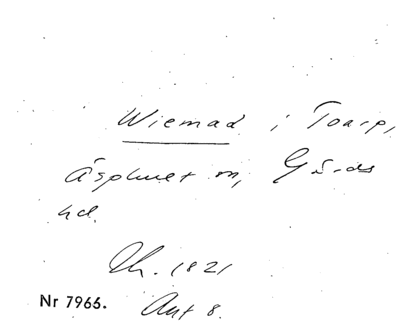 Wiemad i Toarp,
Äsphult sn, Gärds
hd.
Th. 1821
Nr 7965. Ant 8.